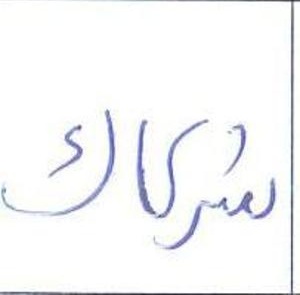 شركاك